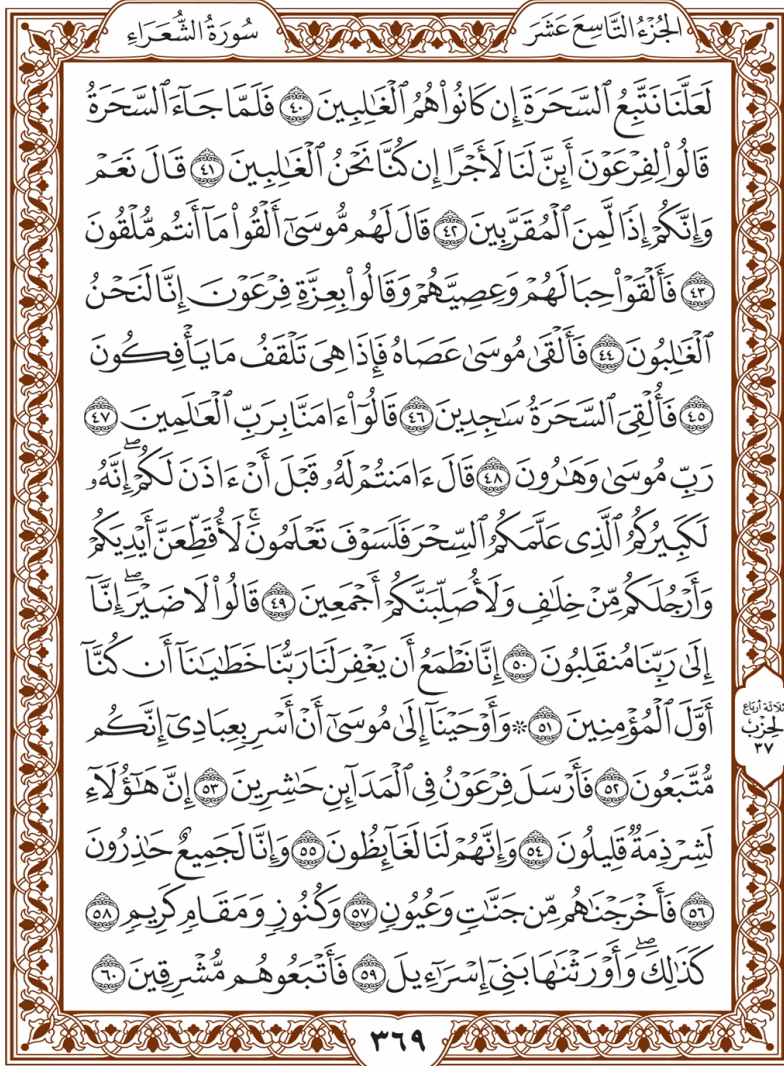 الجُزْءُ التَّاسِعَ عَشَرَ
سُورَةُ الشُّعَرَاءِ
لَعَلَّنَا نَتَّبِعُ ٱلسَّحَرَةَ إِن كَانُوا۟ هُمُ ٱلْغَـٰلِبِينَ ٤٠ فَلَمَّا جَآءَ ٱلسَّحَرَةُ
قَالُوا۟ لِفِرْعَوْنَ أَئِنَّ لَنَا لَأَجْرًا إِن كُنَّا نَحْنُ ٱلْغَـٰلِبِينَ ٤١ قَالَ نَعَمْ
وَإِنَّكُمْ إِذًا لَّمِنَ ٱلْمُقَرَّبِينَ ٤٢ قَالَ لَهُم مُّوسَىٰٓ أَلْقُوا۟ مَآ أَنتُم مُّلْقُونَ
٤٣ فَأَلْقَوْا۟ حِبَالَهُمْ وَعِصِيَّهُمْ وَقَالُوا۟ بِعِزَّةِ فِرْعَوْنَ إِنَّا لَنَحْنُ
ٱلْغَـٰلِبُونَ ٤٤ فَأَلْقَىٰ مُوسَىٰ عَصَاهُ فَإِذَا هِىَ تَلْقَفُ مَا يَأْفِكُونَ
٤٥ فَأُلْقِىَ ٱلسَّحَرَةُ سَـٰجِدِينَ ٤٦ قَالُوٓا۟ ءَامَنَّا بِرَبِّ ٱلْعَـٰلَمِينَ ٤٧
رَبِّ مُوسَىٰ وَهَـٰرُونَ ٤٨ قَالَ ءَامَنتُمْ لَهُۥ قَبْلَ أَنْ ءَاذَنَ لَكُمْ ۖ إِنَّهُۥ
لَكَبِيرُكُمُ ٱلَّذِى عَلَّمَكُمُ ٱلسِّحْرَ فَلَسَوْفَ تَعْلَمُونَ ۚ لَأُقَطِّعَنَّ أَيْدِيَكُمْ
وَأَرْجُلَكُم مِّنْ خِلَـٰفٍ وَلَأُصَلِّبَنَّكُمْ أَجْمَعِينَ ٤٩ قَالُوا۟ لَا ضَيْرَ ۖ إِنَّآ
إِلَىٰ رَبِّنَا مُنقَلِبُونَ ٥٠ إِنَّا نَطْمَعُ أَن يَغْفِرَ لَنَا رَبُّنَا خَطَـٰيَـٰنَآ أَن كُنَّآ
أَوَّلَ ٱلْمُؤْمِنِينَ ٥١ ۞ وَأَوْحَيْنَآ إِلَىٰ مُوسَىٰٓ أَنْ أَسْرِ بِعِبَادِىٓ إِنَّكُم
مُّتَّبَعُونَ ٥٢ فَأَرْسَلَ فِرْعَوْنُ فِى ٱلْمَدَآئِنِ حَـٰشِرِينَ ٥٣ إِنَّ هَـٰٓؤُلَآءِ
لَشِرْذِمَةٌ قَلِيلُونَ ٥٤ وَإِنَّهُمْ لَنَا لَغَآئِظُونَ ٥٥ وَإِنَّا لَجَمِيعٌ حَـٰذِرُونَ
٥٦ فَأَخْرَجْنَـٰهُم مِّن جَنَّـٰتٍ وَعُيُونٍ ٥٧ وَكُنُوزٍ وَمَقَامٍ كَرِيمٍ ٥٨
كَذَٰلِكَ ۖ وَأَوْرَثْنَـٰهَا بَنِىٓ إِسْرَٰٓءِيلَ ٥٩ فَأَتْبَعُوهُم مُّشْرِقِينَ ٦٠
ثلاثة أرباع
الحزب
٣٧
٣٦٩